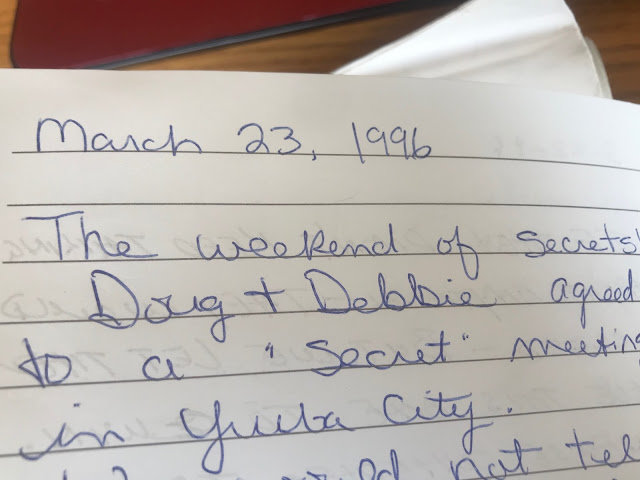 March 23, 1996
The weekend of Secrets!
Doug + Debbie agreed
to a "Secret" meeting
in Yuba City.
not tel